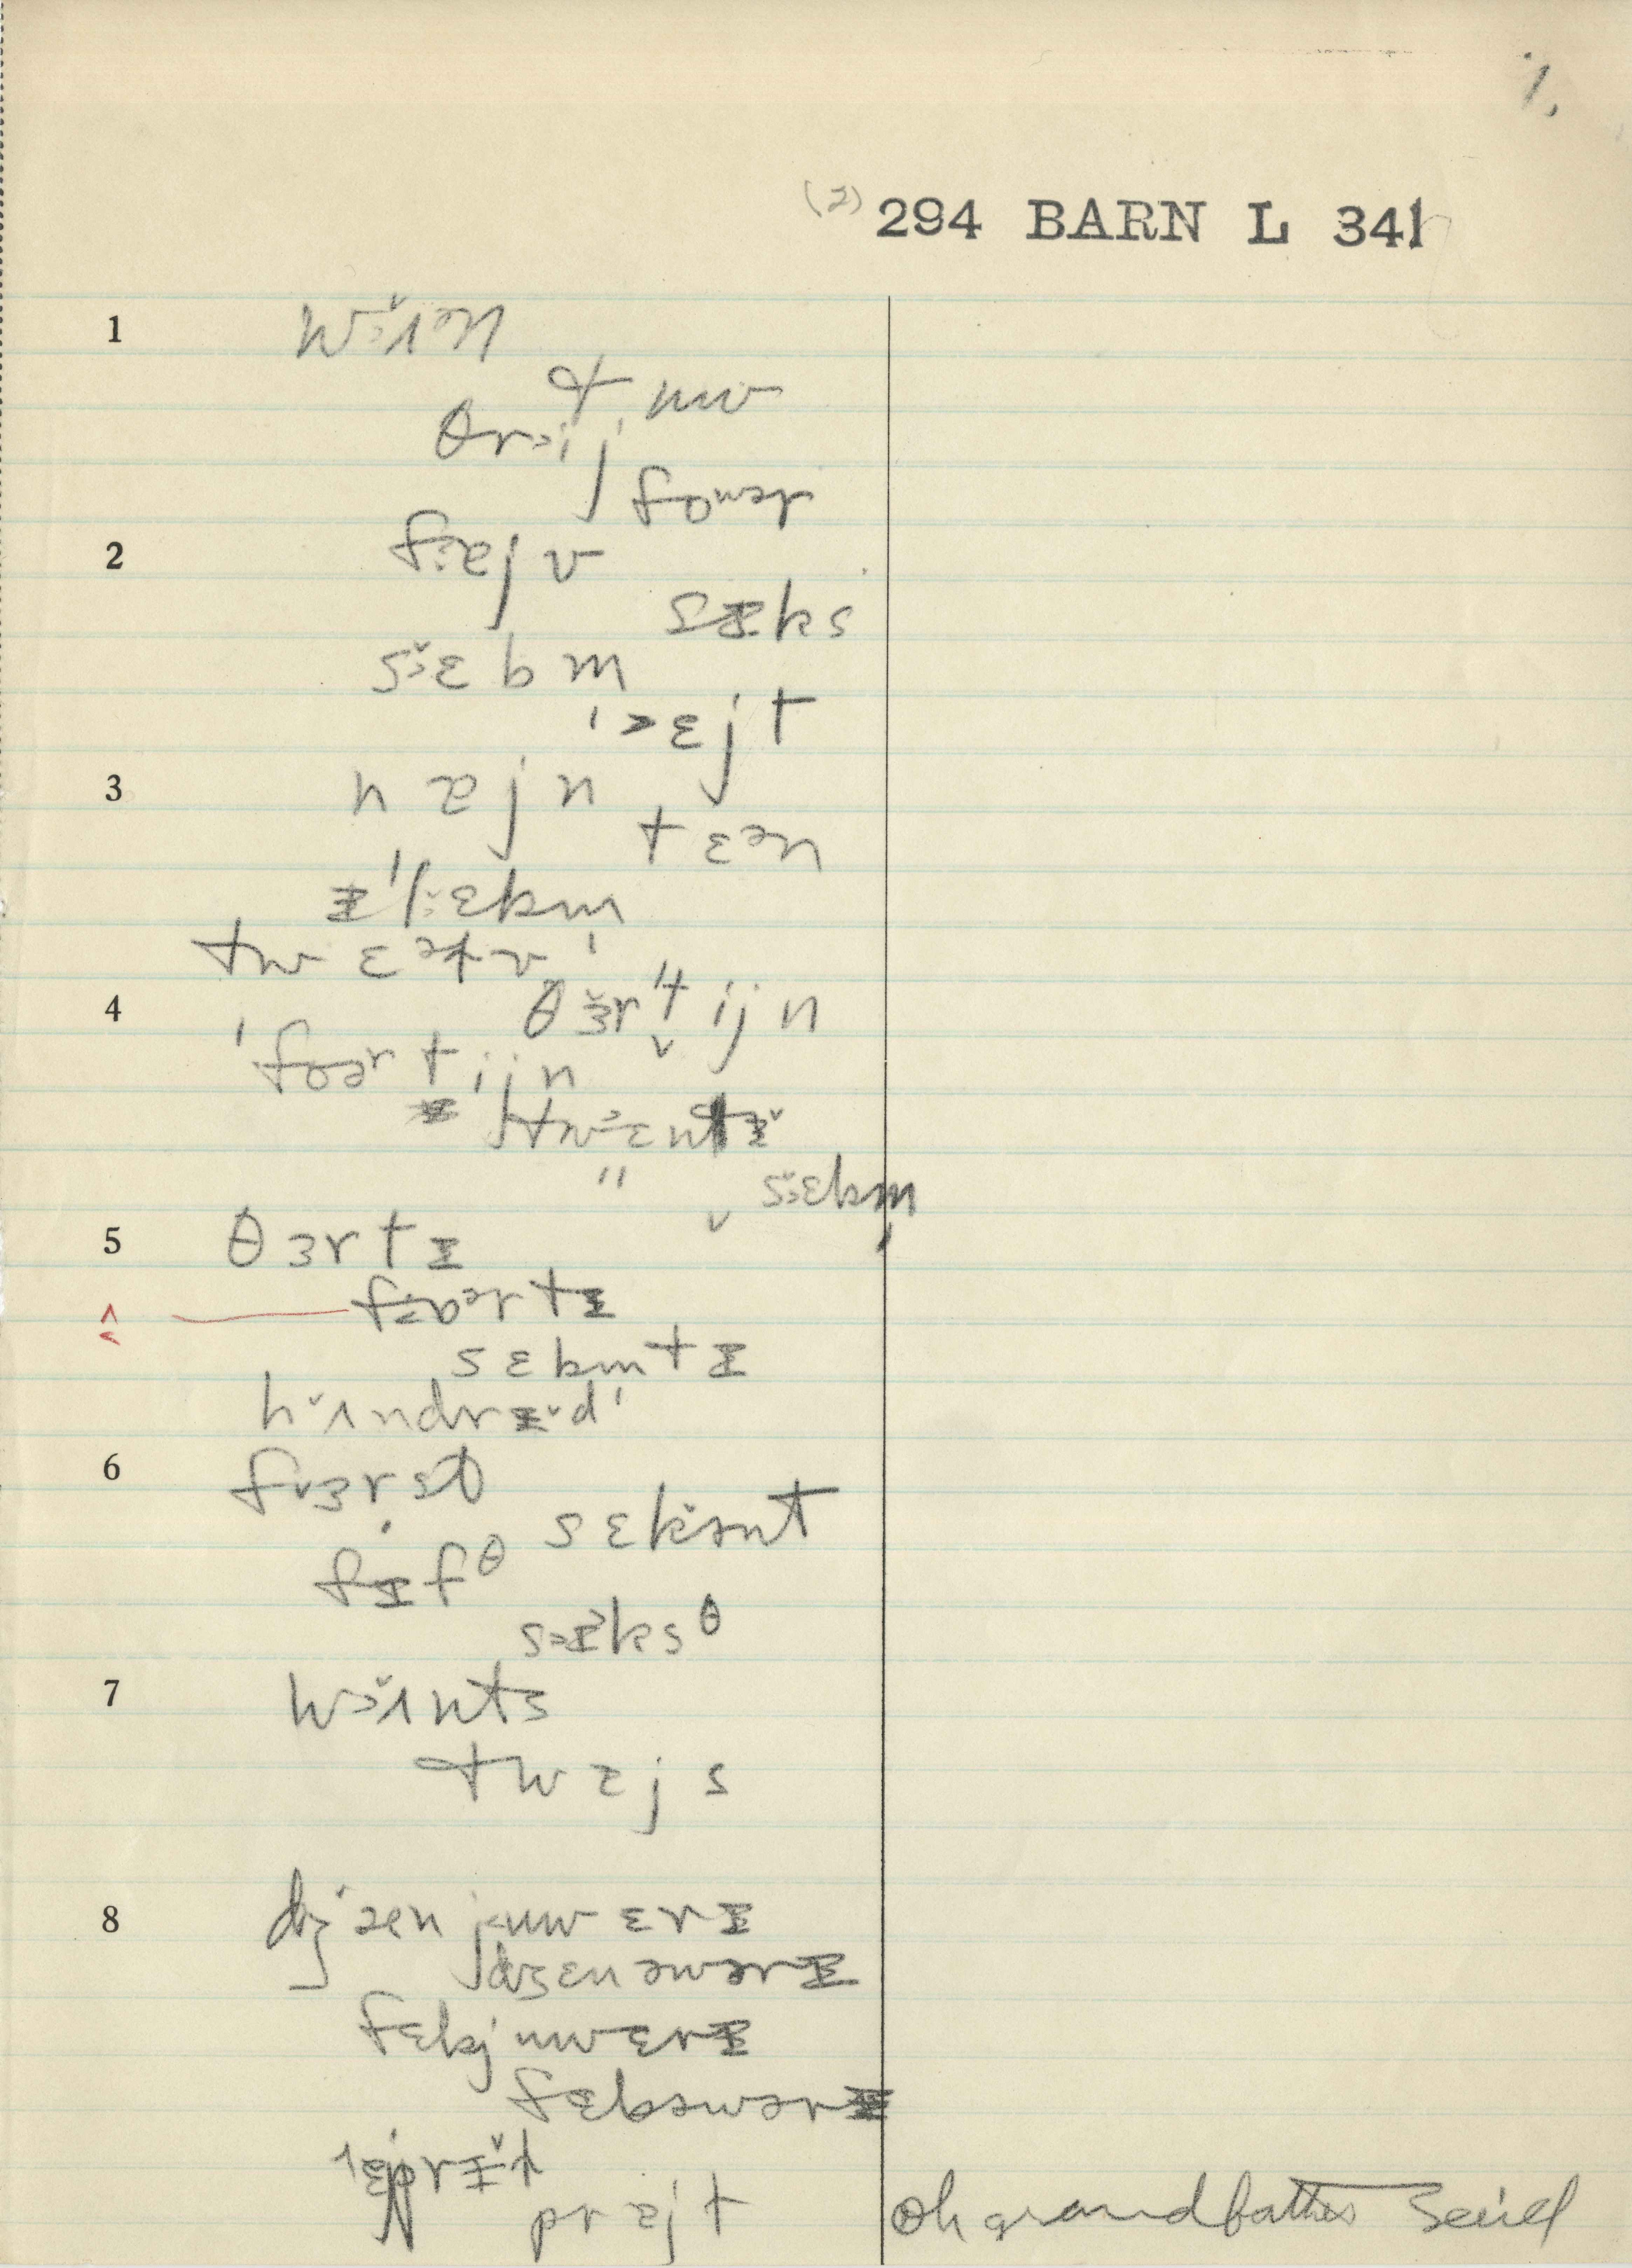 1.
(2) 294 BARN L 341
1 w˃ʌ̆ᵊn
tuw
θr˃ij
foʷər
2 f:ɐjv
sɪks
s˃ɛ̆bm
'˃ɛjt
3 nɐjn
tɛᵊn
ɪ'l˃ɛ̆bm
twɛᵊɫv
4 θɜ̆r'tijn
'foərtijn
tw˃ɛntɪ̆
" s˃ɛ̆bm
5 θɜrtɪ
fɔərtɪ
sɛbmtɪ
hʌ̆ndrɪ̆d
6 fɜrst
sɛkənt
fɪfθ
s˃ɪksθ
7 w˃ʌ̆nts
twɐjs
8 dʒænjuwɛrɪ
dʒɛnəwərɪ
fɛbjuwɛrɪ
fɛbəwərɪ
prɐjt
oh grandfather